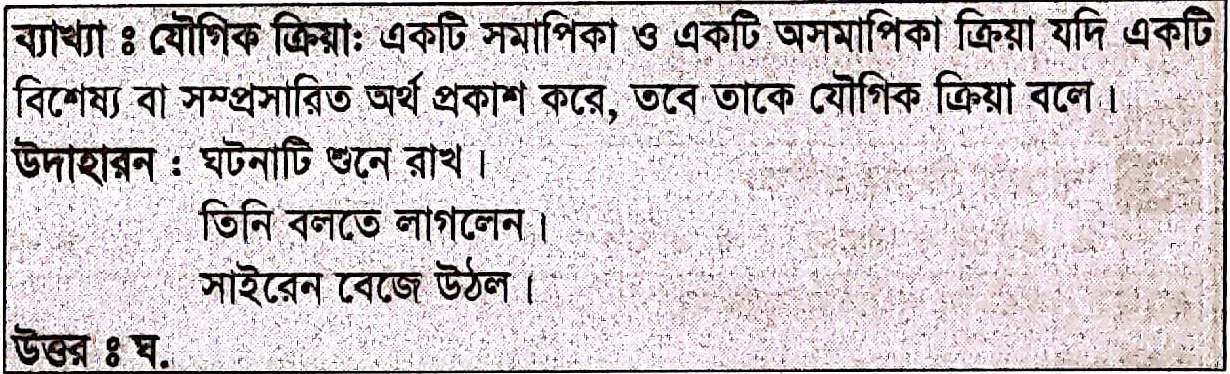 ব্যাখ্যা ঃ যৌগিক ক্রিয়া: একটি সমাপিকা ও একটি অসমাপিকা ক্রিয়া যদি একটি
বিশেষ্য বা সম্প্রসারিত অর্থ প্রকাশ করে, তবে তাকে যৌগিক ক্রিয়া বলে।
উদাহারন : ঘটনাটি শুনে রাখ।
তিনি বলতে লাগলেন।
সাইরেন বেজে উঠল।
উত্তর ঃ ঘ.